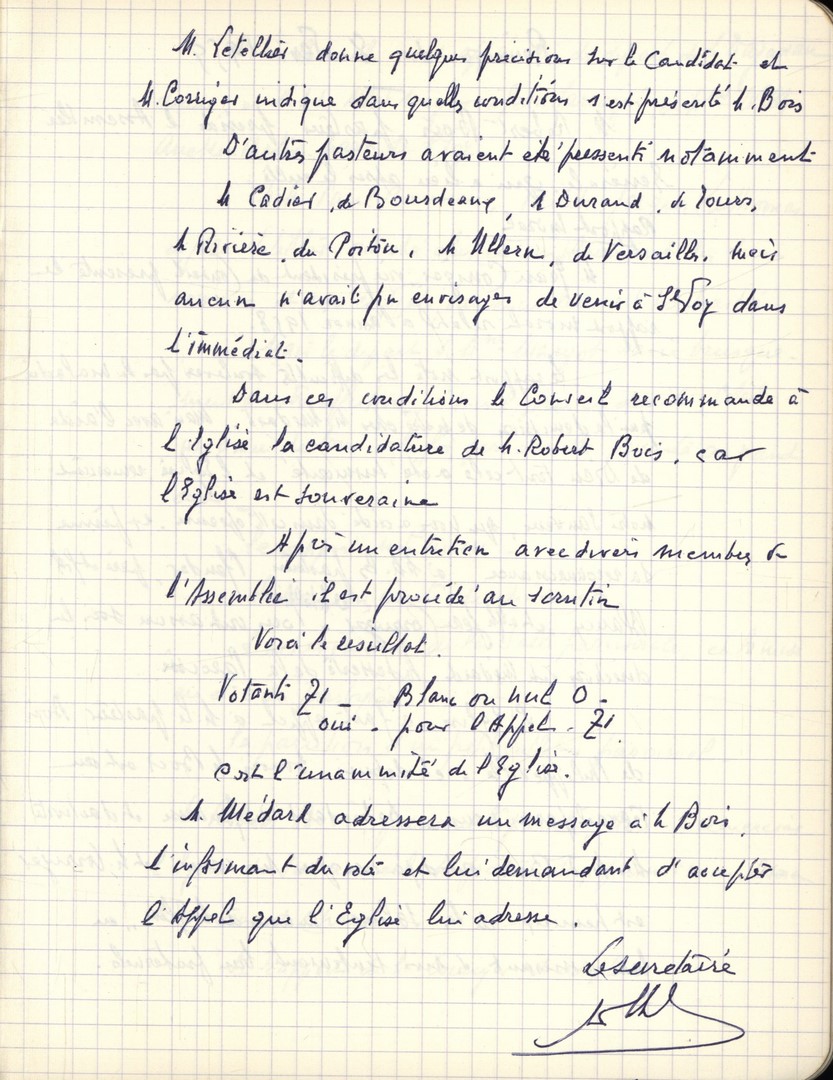 M. Letellier donne quelques précisions sur le Candidat et
M. Corriger indique dans quelles conditions s'est présenté M. Bois
D'autres pasteurs avaient été pressenti notamment
M Cadier, de Bourdeaux, M Durand, de Tours,
M Rivière, du Poitou, M Ullern, de Versailles, mais
aucun n'avait pu envisager de venir à Ste Foy dans
l'immédiat.
Dans ces conditions le Conseil recommande à
l'Eglise la candidature de M. Robert Bois, car
l'Eglise est souveraine
Après un entretien avec divers membres de
l'Assemblée il est procédé au scrutin
Voici le résultat.
Votants 71 - Blanc ou nul 0 -
oui - pour l'Appel - 71
C'est l'unanimité de l'Eglise.
M. Médard adressera un message à M Bois,
l'informant du vote et lui demandant d'accepter
l'Appel que l'Eglise lui adresse.
Le secrétaire